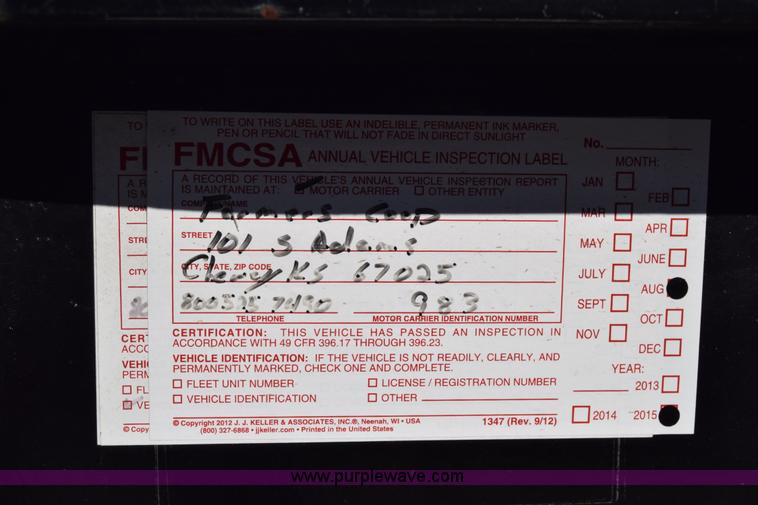 TO WRITE ON THIS LABEL USE AN INDELIBLE, PERMANENT INK MARKER,
PEN OR PENCIL THAT WILL NOT FADE IN DIRECT SUNLIGHT
FMCSA ANNUAL VEHICLE INSPECTION LABEL
A RECORD OF THIS VEHICLE'S ANNUAL VEHICLE INSPECTION REPORT
IS MAINTAINED AT: MOTOR CARRIER OTHER ENTITY
COMPANY NAME
Farmers Coop
STREET 101 S Adams
CITY, STATE, ZIP CODE
KS 67025
983
TELEPHONE MOTOR CARRIER IDENTIFICATION NUMBER
CERTIFICATION: THIS VEHICLE HAS PASSED AN INSPECTION IN
ACCORDANCE WITH 49 CFR 396.17 THROUGH 396.23.
VEHICLE IDENTIFICATION: IF THE VEHICLE IS NOT READILY, CLEARLY, AND
PERMANENTLY MARKED, CHECK ONE AND COMPLETE.
FLEET UNIT NUMBER LICENSE / REGISTRATION NUMBER
VEHICLE IDENTIFICATION OTHER
© Copyright 2012 J. J. KELLER & ASSOCIATES, INC.®, Neenah, WI • USA
(800) 327-6868 • jjkeller.com • Printed in the United States
1347 (Rev. 9/12)
No.
MONTH:
JAN FEB
MAR APR
MAY JUNE
JULY AUG
SEPT OCT
NOV DEC
YEAR:
2013
2014 2015
www.purplewave.com